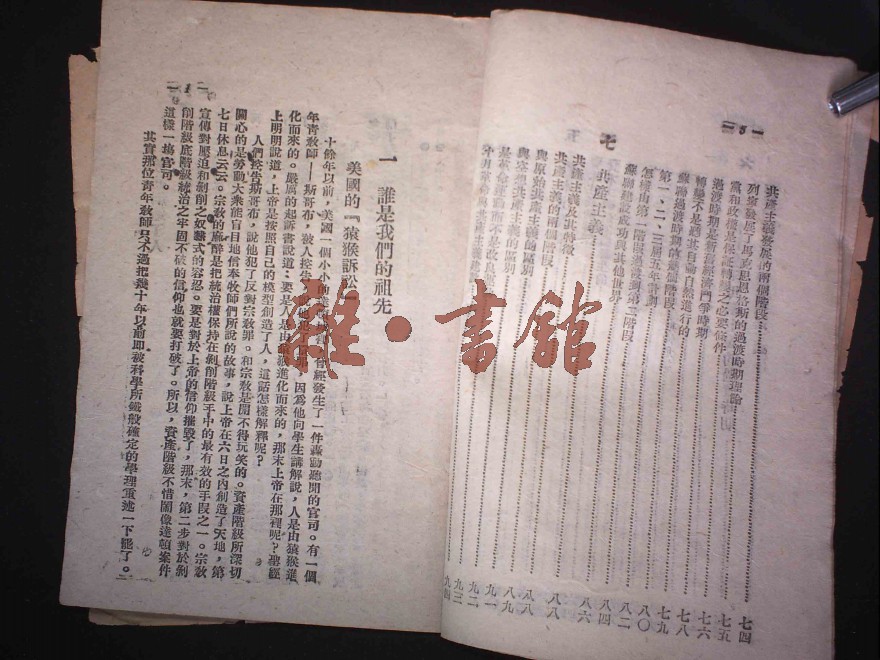 — 3 —
共產主義發展的兩個階段 七四
列寧發展了馬克思恩格斯的過渡時期理論 七五
黨和政權是保証轉變之必要條件 七六
過渡時期是新舊經濟鬥爭時期 七八
轉變不是趨其自論自然進行的 七九
蘇聯過渡時期的幾個階段 八〇
第一、二、三屆五年計劃 八二
怎樣由第一階段過渡到第二階段 八四
蘇聯建設成功與其他世界 八六
七 共產主義
共產主義及其特徵 八八
共產主義的兩個階段 八八
與原始共產主義的區別 八九
的區別 九一
是革命運動而不是改良 九二
九三
九四
— 1 —
一 誰是我們的祖先
美國的『猿猴訴訟』
十餘年以前,美國一個小小的 曾經發生了一件轟動聽聞的官司。有一個
年青教師——斯哥布,被人控告, 因爲他向學生講解說,人是由猿猴進
化而來的。嚴厲的起訴書說道:要是人是由猿猴進化而來的,那末上帝在那裡呢?聖經
上明明說道,上帝是按照自己的模型創造了人,這話怎樣解釋呢?
人們控告斯哥布,說他犯了反對宗教罪。和宗教是開不得玩笑的。資產階級所深切
關心的是勞動大衆能盲目地信奉牧師們所說的故事,說上帝在六日之內創造了天地,第
七日休息云云。宗教的麻醉是把統治權保持在剝削階級手中的最有效的手段之一。宗教
宣傳對壓迫和剝削之奴隸式的容忍。要是對於上帝的信仰摧毀了,那末,第二步對於剝
削階級底階級統治之牢固不破的信仰也就要打破了。所以,資產階級不惜鬧像達頓案件
這樣一塲官司。
其實那位青年教師只不過把幾十年以前即被科學所鐵般確定的學理重述一下罷了。
雅·書館